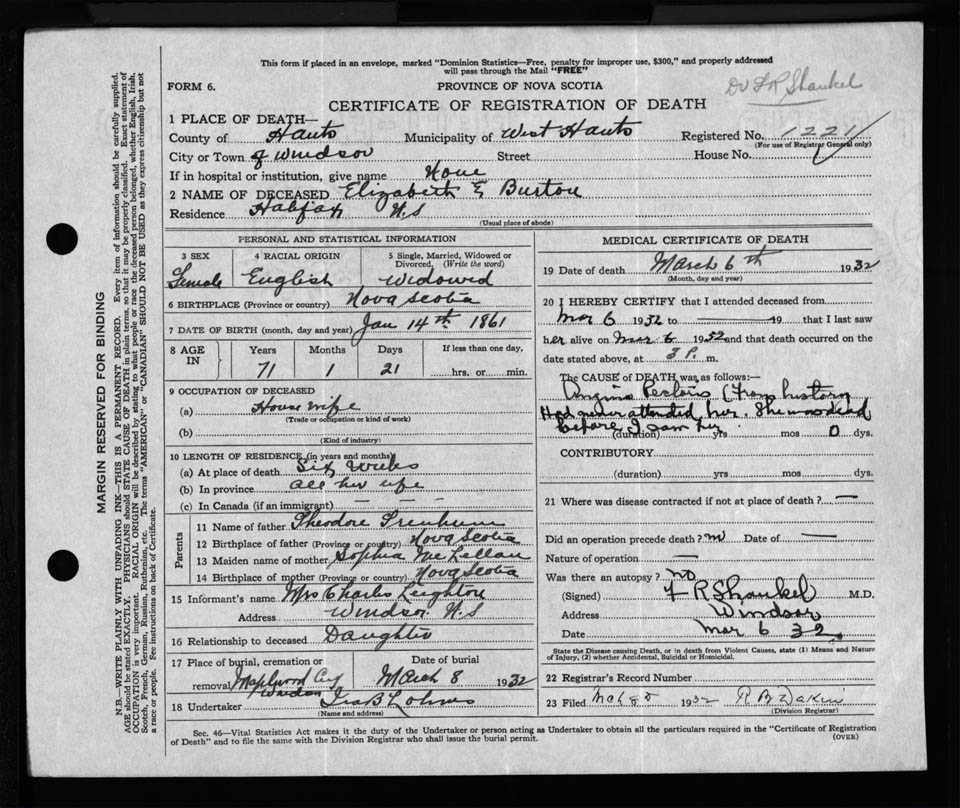 This form if placed in an envelope, marked "Dominion Statistics—Free, penalty for improper use, $300," and properly addressed
will pass through the Mail "FREE"
FORM 6.
PROVINCE OF NOVA SCOTIA
Dr F R Shankel
CERTIFICATE OF REGISTRATION OF DEATH
1 PLACE OF DEATH—
County of Hants Municipality of West Hants Registered No. 1221
(For use of Registrar General only)
City or Town of Windsor Street House No.
If in hospital or institution, give name None
2 NAME OF DECEASED Elizabeth E Burton
Residence Halifax N.S
(Usual place of abode)
PERSONAL AND STATISTICAL INFORMATION
3 SEX 4 RACIAL ORIGIN 5 Single, Married, Widowed or
Divorced. (Write the word)
Female English Widowed
6 BIRTHPLACE (Province or country) Nova Scotia
7 DATE OF BIRTH (month, day and year) Jan 14th 1861
8 AGE IN Years Months Days If less than one day,
71 1 21 hrs. or min.
9 OCCUPATION OF DECEASED
(a) House wife
(Trade or occupation or kind of work)
(b)
(Kind of industry)
10 LENGTH OF RESIDENCE (in years and months)
(a) At place of death Six Weeks
(b) In province all her life
(c) In Canada (if an immigrant) — — —
Parents
11 Name of father Theodore
12 Birthplace of father (Province or country) Nova Scotia
13 Maiden name of mother Sophia McLellan
14 Birthplace of mother (Province or country) Nova Scotia
15 Informant's name Mrs Charles Leighton
Address Windsor N.S
16 Relationship to deceased Daughter
17 Place of burial, cremation or Date of burial
removal Maplewood Cey March 8 1932
Windsor
18 Undertaker
(Name and address)
MEDICAL CERTIFICATE OF DEATH
19 Date of death March 6th 1932
(Month, day and year)
20 I HEREBY CERTIFY that I attended deceased from
Mar 6 1932 to — 19 that I last saw
her alive on Mar 6 1932 and that death occurred on the
date stated above, at 3 P. m.
The CAUSE of DEATH was as follows:—
Angina Pectoris (from history
Had never attended her. She was dead
before I saw her.
(duration) yrs mos 0 dys.
CONTRIBUTORY
(duration) yrs mos dys.
21 Where was disease contracted if not at place of death? —
Did an operation precede death? no Date of —
Nature of operation —
Was there an autopsy? no
(Signed) F R Shankel M.D.
Address Windsor
Date Mar 6 32
State the Disease causing Death, or in death from Violent Causes, state (1) Means and Nature
of Injury, (2) whether Accidental, Suicidal or Homicidal.
22 Registrar's Record Number
23 Filed 1932
(Division Registrar)
Sec. 46—Vital Statistics Act makes it the duty of the Undertaker or person acting as Undertaker to obtain all the particulars required in the "Certificate of Registration
of Death" and to file the same with the Division Registrar who shall issue the burial permit.
(OVER)
MARGIN RESERVED FOR BINDING
N.B.—WRITE PLAINLY WITH UNFADING INK—THIS IS A PERMANENT RECORD. Every item of information should be carefully supplied.
AGE should be stated EXACTLY. PHYSICIANS should STATE CAUSE OF DEATH in plain terms, so that it may be properly classified. Exact statement of
OCCUPATION is very important. RACIAL ORIGIN will be described by stating to what people or race the deceased person belonged, whether English, Irish,
Scotch, French, German, Russian, Ruthenian, etc. The terms "AMERICAN" or "CANADIAN" SHOULD NOT BE USED as they express citizenship but not
a race or people. See instructions on back of Certificate.